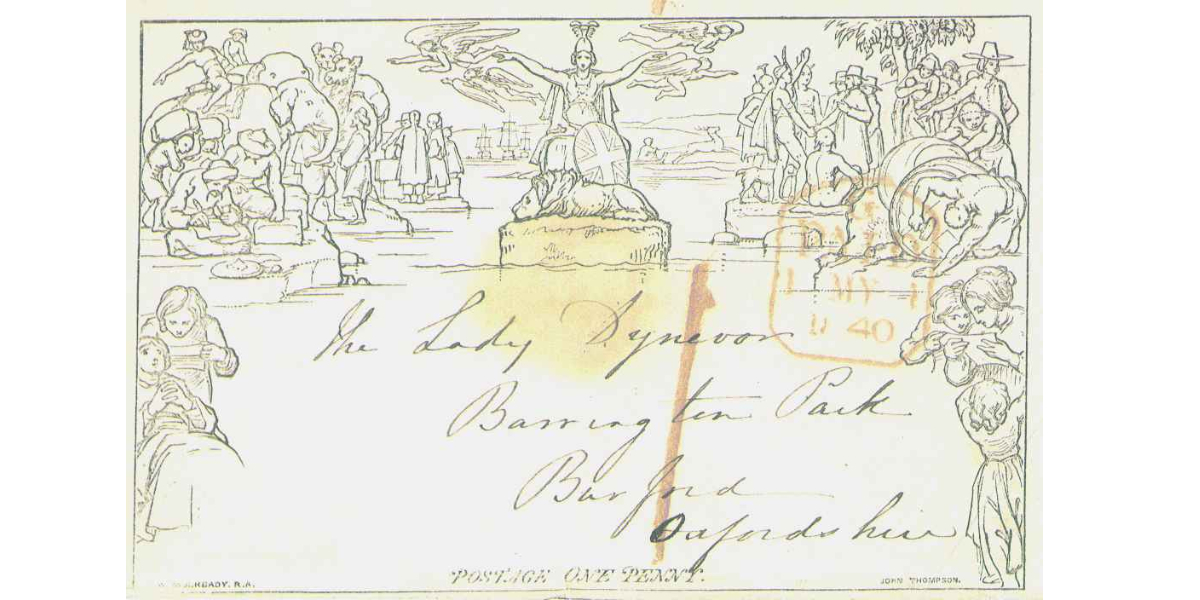 PAID
MY
40
The Lady Dynevor
Barrington Park
Burford
Oxfordshire
POSTAGE ONE PENNY.
READY. R.A.
JOHN THOMPSON.